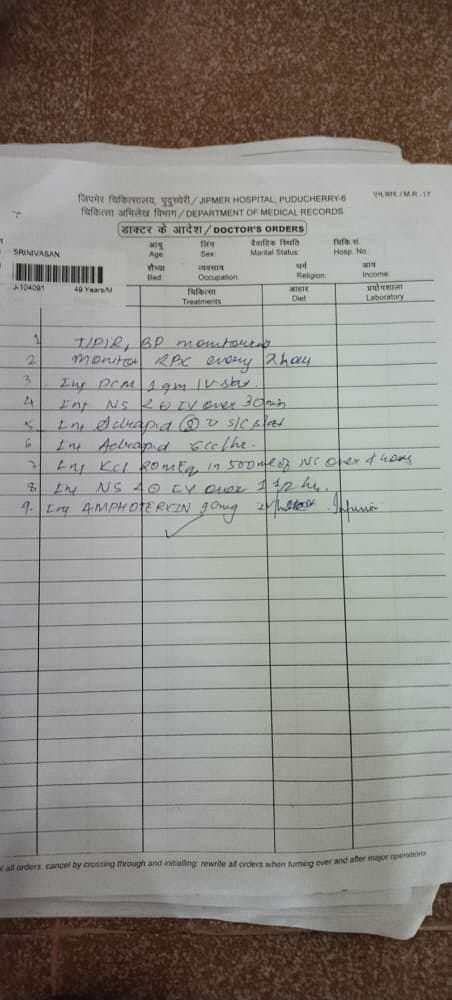 एम.आर. / M.R.-17
जिपमेर चिकित्सालय, पुदुच्चेरी / JIPMER HOSPITAL, PUDUCHERRY-6
चिकित्सा अभिलेख विभाग / DEPARTMENT OF MEDICAL RECORDS
डाक्टर के आदेश / DOCTOR'S ORDERS
SRINIVASAN
आयु लिंग वैवाहिक स्थिति चिकि सं.
Age: Sex: Marital Status: Hosp. No.:
शैय्या व्यवसाय धर्म आय
Bed: Occupation: Religion: Income:
J-104091 49 Years/M
चिकित्सा आहार प्रयोगशाला
Treatments Diet Laboratory
1 T/P/R, BP
2 Monitor every 2 hour
3 Inj PCM 1 gm IV
4 Inj NS IV over 30 min
5 Inj S/C
6 Inj Actrapid 6cc/hr.
7. Inj KCl 20 mEq in 500ml of NS over
8. Inj NS IV over 1 1/2 hr.
9. Inj AMPHOTERICIN
all orders. cancel by crossing through and initialling: rewrite all orders when turning over and after major operations